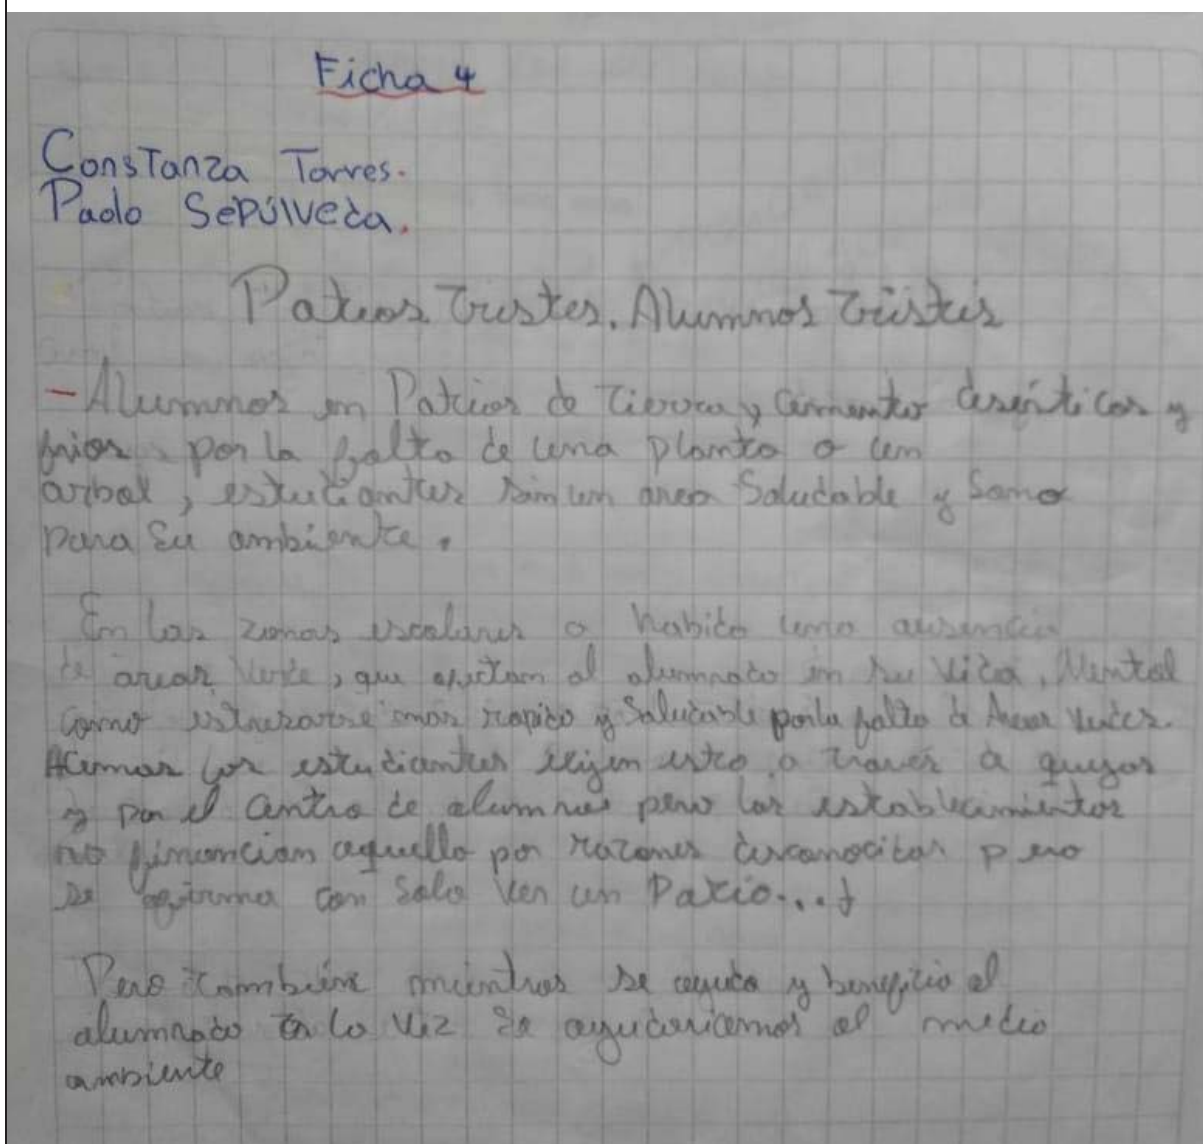 Ficha 4
Constanza Torres.
Paolo Sepúlveda.
Patios Tristes, Alumnos Tristes
- Alumnos en Patios de Tierra y cemento desérticos y
frios, por la falta de una planta o un
arbol, estudiantes sin un area Saludable y Sano
para su ambiente.
En las zonas escolares a habido una ausencia
de areas verde, que afectan al alumnado en su vida, Mental
como estresarse mas rapido y Saludable por la falta de Areas verdes.
Ademas los estudiantes exijen esto a traves de quejas
y por el centro de alumnos pero los establecimientos
no financian aquello por razones desconocidas pero
se afirma con solo ver un Patio...
Pero tambien mientras se ayuda y beneficia al
alumnado a la vez ayudariamos al medio
ambiente